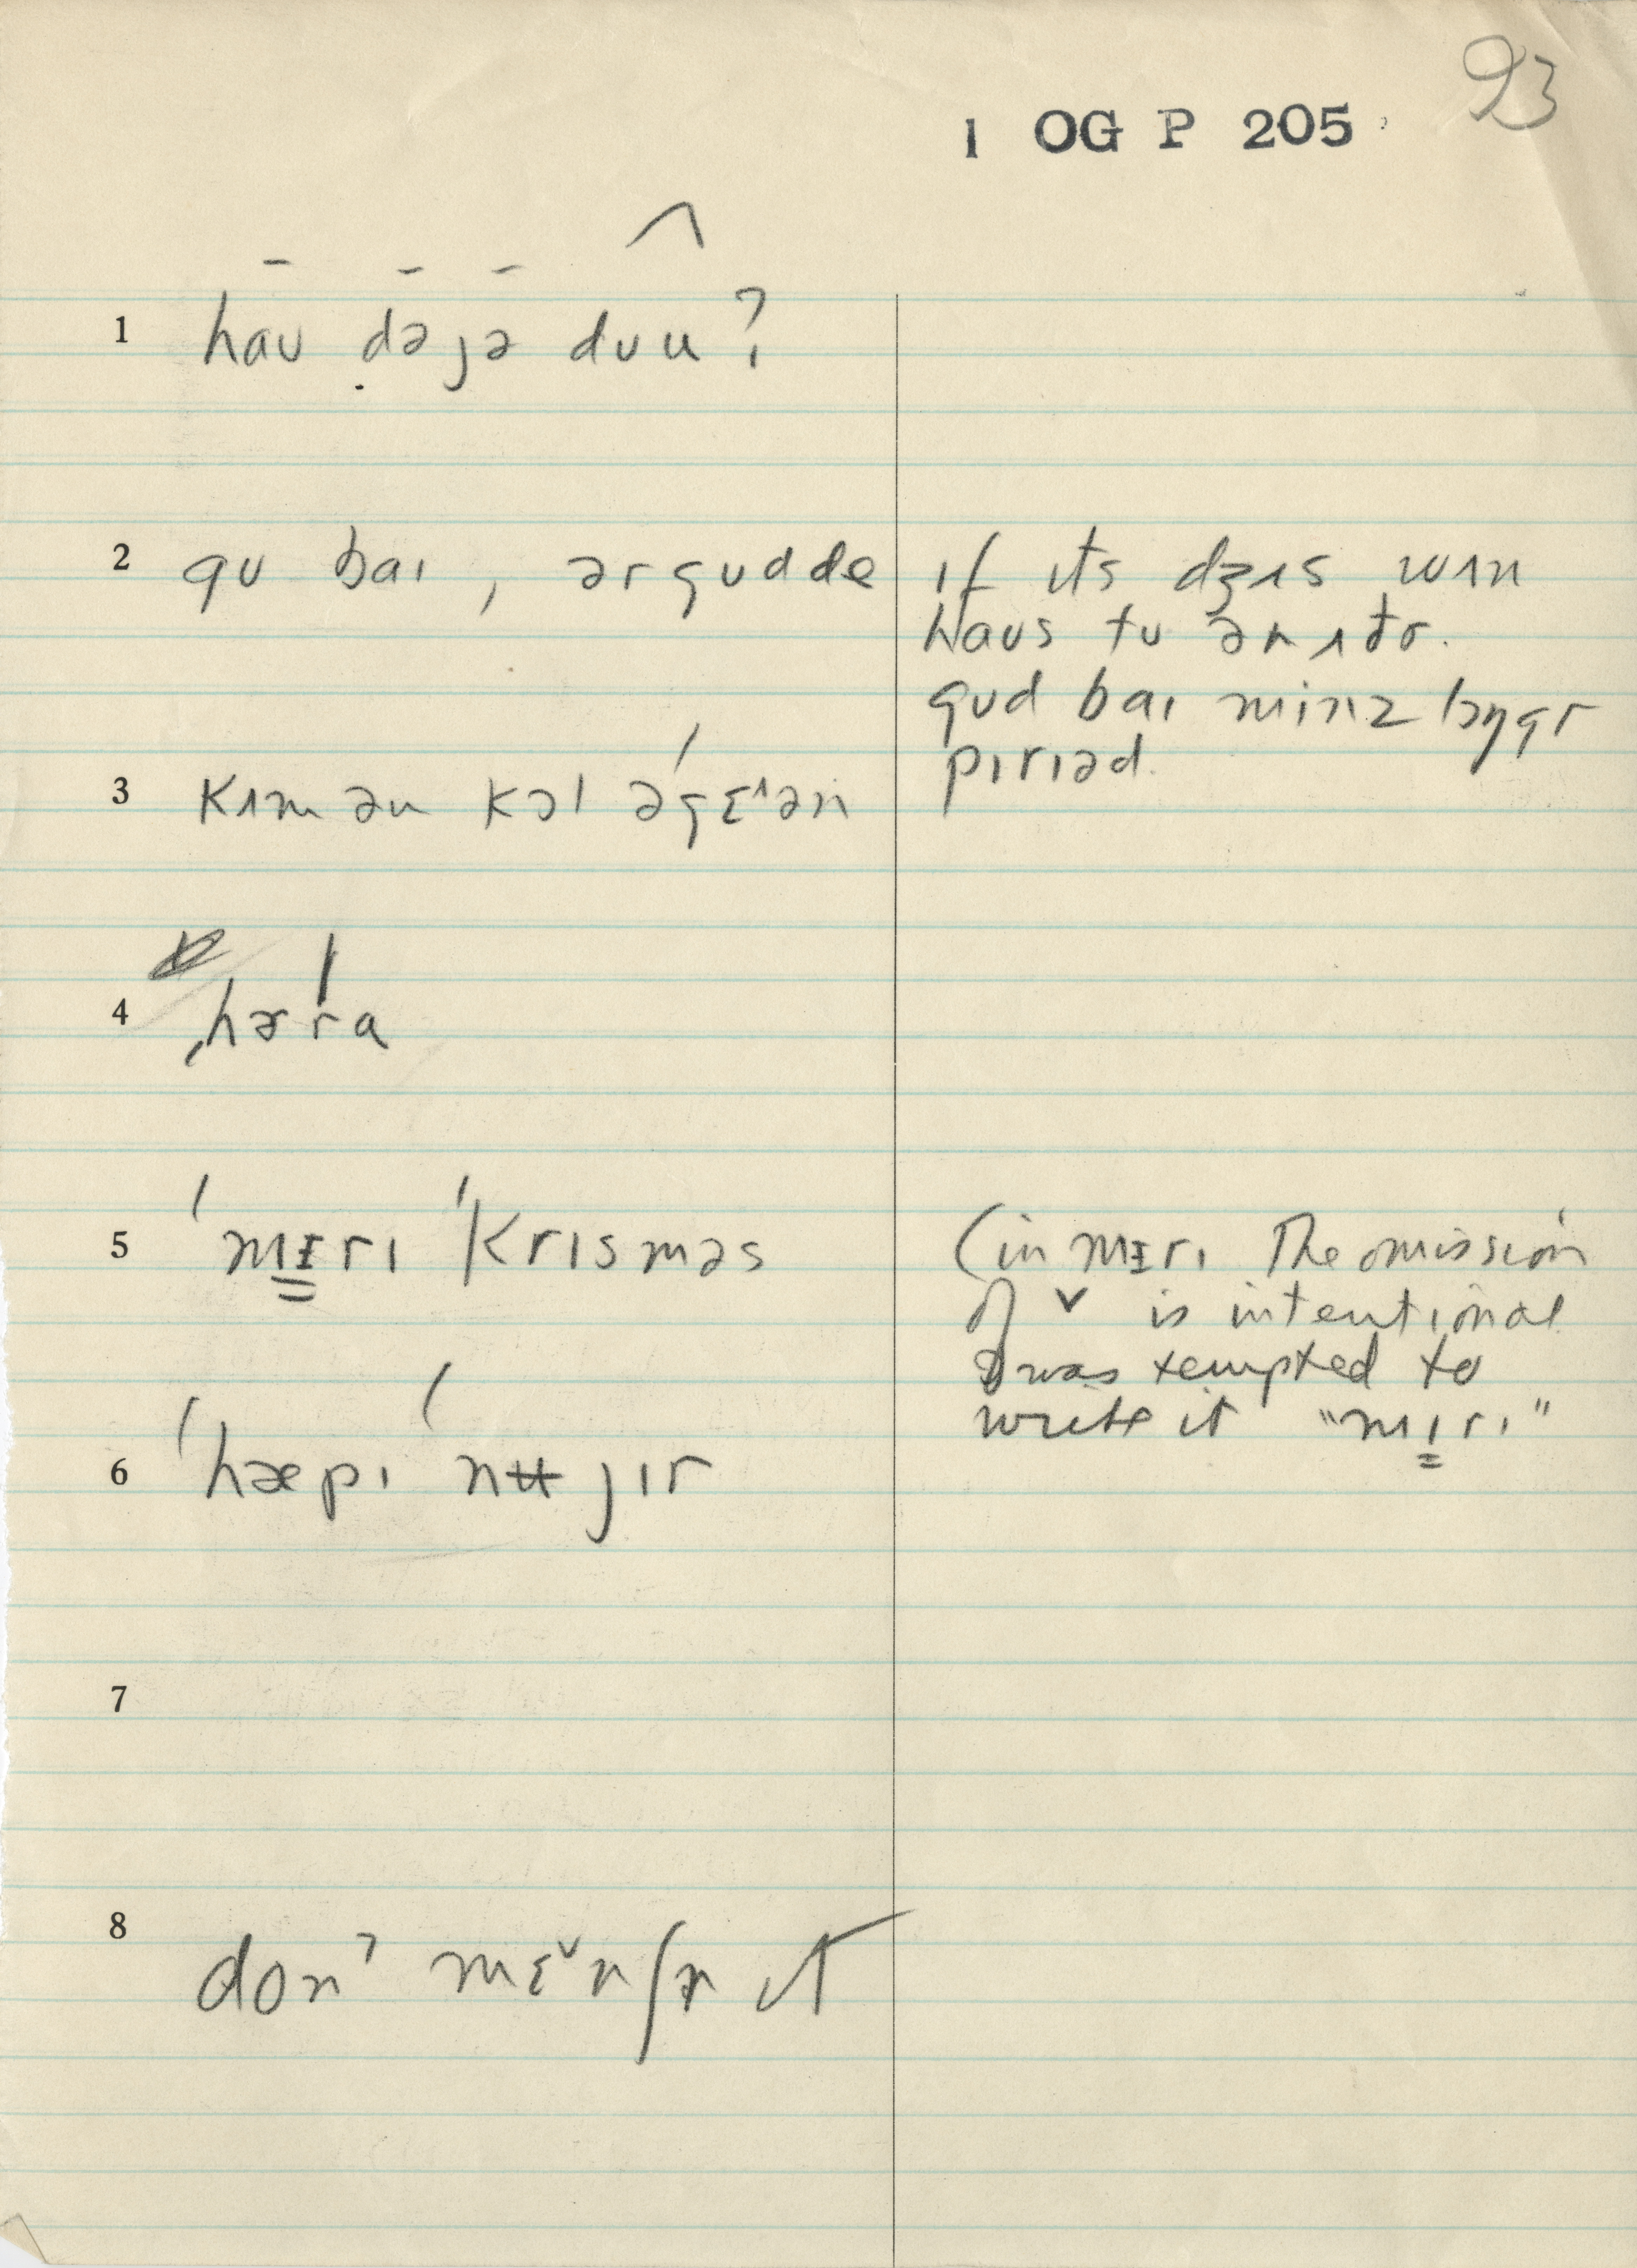 93
1 OG P 205
1 haʊ dəjə dʊu?
2 gʊ baɪ, ər gʊd de
if ɪts dʒʌs wʌn
haʊs tʊ ənʌðr.
gʊd baɪ minz lɔŋgr
pɪrɪəd.
3 kʌm ən kɔl əgɛˈən
4 hərɑ
5 ˈmɪrɪ ˈkrɪsməs
(in mɪrɪ The omission
of ˇ is intentional
I was tempted to
write it "mɪrɪ"
6 ˈhæpɪ nʉ jɪr
7
8 donˀ mɛˇnʃn ɪt